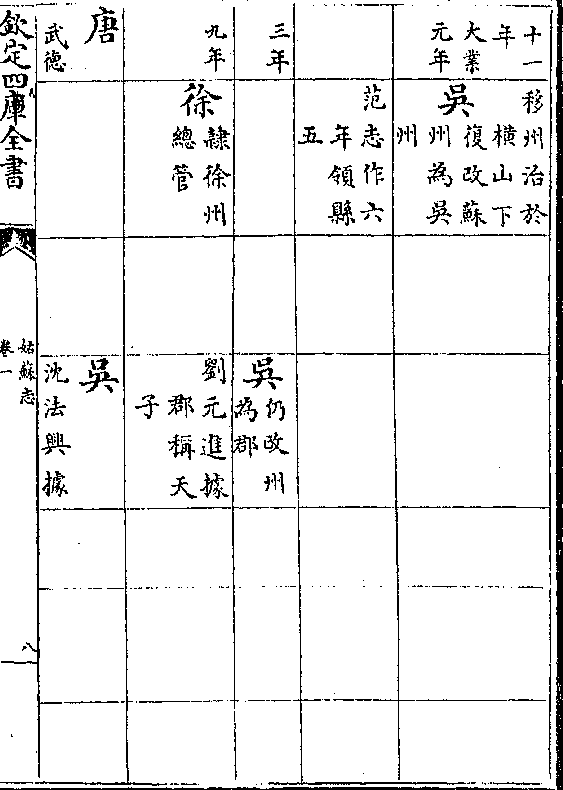 十一
年
大業
元年
移州治於
橫山下
吳
復改蘇
州為吳
州
范志作六
年領縣
五
三年
吳
仍改州
為郡
九年
徐
隸徐州
總管
劉元進據
郡稱天
子
唐
武德
吳
沈法興據
欽定四庫全書
姑蘇志
卷一
八